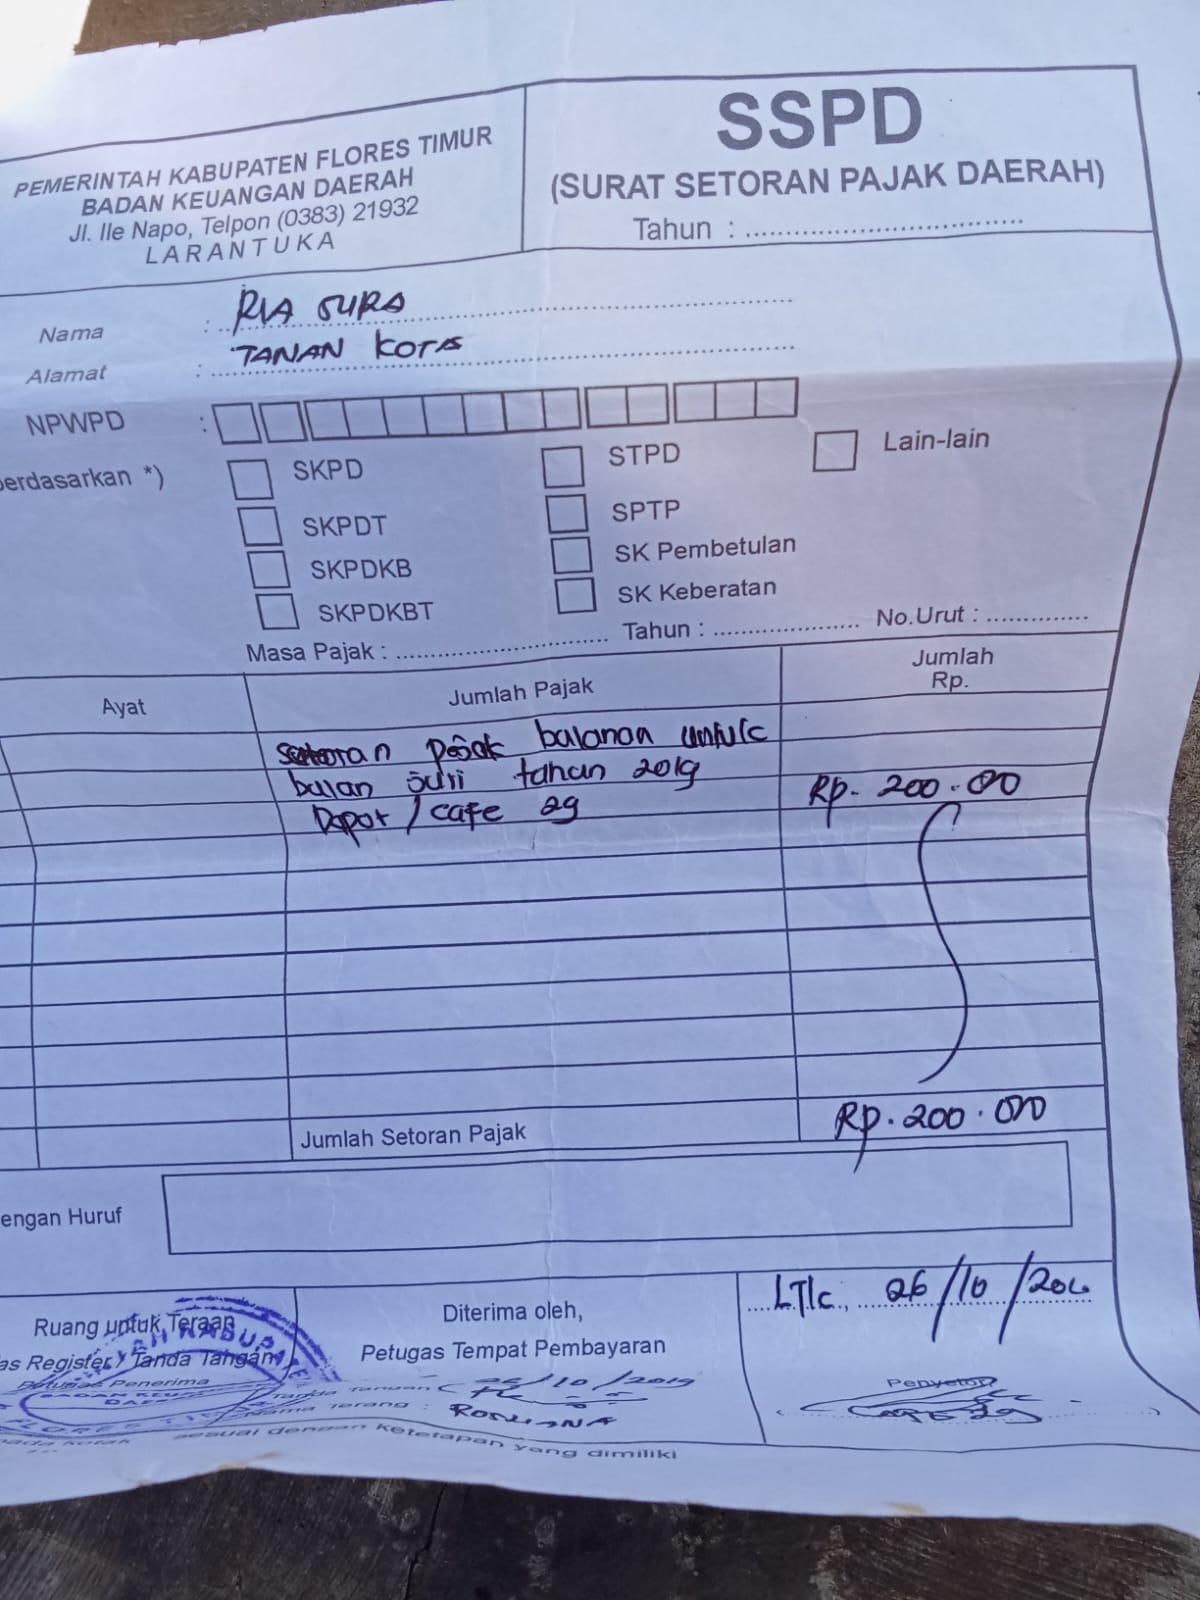 PEMERINTAH KABUPATEN FLORES TIMUR
BADAN KEUANGAN DAERAH
Jl. Ile Napo, Telpon (0383) 21932
LARANTUKA
SSPD
(SURAT SETORAN PAJAK DAERAH)
Tahun :
Nama : RIA SURA
Alamat : TANAN KOTA
NPWPD :
berdasarkan *)
SKPD STPD Lain-lain
SKPDT SPTP
SKPDKB SK Pembetulan
SKPDKBT SK Keberatan
Masa Pajak : Tahun : No.Urut :
Ayat Jumlah Pajak Jumlah
Rp.
Setoran pajak bulanan untuk
bulan Juli tahun 2019 Rp. 200.000
Dapor / cafe 29
Jumlah Setoran Pajak Rp. 200.000
engan Huruf
Ruang untuk Teraan
as Register / Tanda Tangan
Petugas Penerima
BADAN KEUANGAN
DAERAH
Diterima oleh,
Petugas Tempat Pembayaran
Tanda Tangan 26/10/2019
Nama Terang : ROSLIANA
LTk, 26/10/20
Penyetor
Cafe 29
pada kotak sesuai dengan ketetapan yang dimiliki